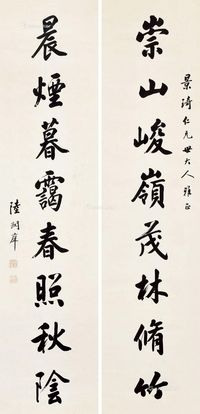 景漪仁兄世大人雅正
崇山峻嶺茂林脩竹
晨煙暮靄春照秋陰
陸潤庠